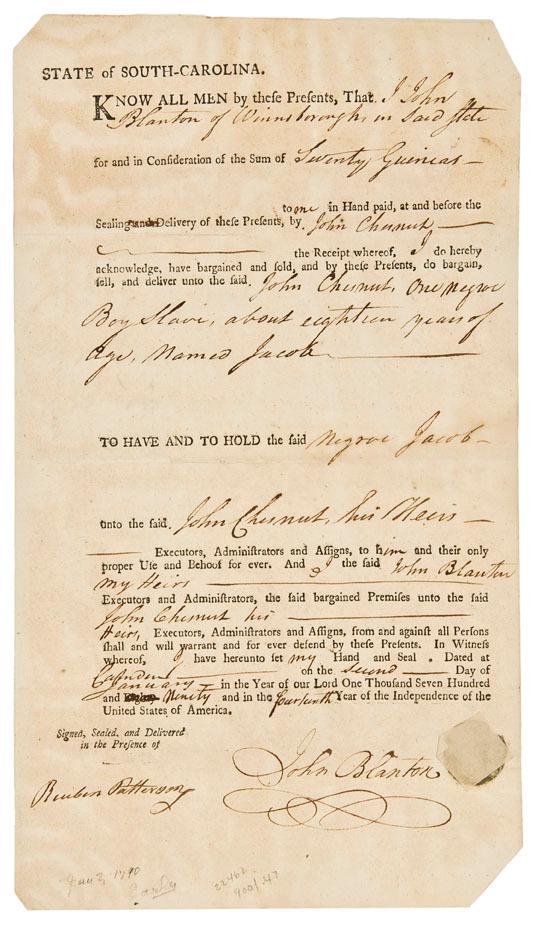 STATE of SOUTH-CAROLINA.
KNOW ALL MEN by theſe Preſents, That I John
Blanton of Winnsborough, in Said State
for and in Conſideration of the Sum of Seventy Guineas
to me in Hand paid, at and before the
Sealing and Delivery of theſe Preſents, by John Chesnut
the Receipt whereof, I do hereby
acknowledge, have bargained and ſold, and by theſe Preſents, do bargain,
ſell, and deliver unto the ſaid John Chesnut, One negroe
Boy Slave, about eighteen years of
Age, Named Jacob
TO HAVE AND TO HOLD the ſaid Negroe Jacob
unto the ſaid John Chesnut, his Heirs
Executors, Adminiſtrators and Aſſigns, to him and their only
proper Uſe and Behoof for ever. And I the ſaid John Blanton
my Heirs
Executors and Adminiſtrators, the ſaid bargained Premiſes unto the ſaid
John Chesnut his
Heirs, Executors, Adminiſtrators and Aſſigns, from and againſt all Perſons
ſhall and will warrant and for ever defend by theſe Preſents. In Witneſs
whereof, I have hereunto ſet my Hand and Seal. Dated at
Camden on the Second Day of
January in the Year of our Lord One Thouſand Seven Hundred
and Ninety and in the fourteenth Year of the Independence of the
United States of America.
Signed, Sealed, and Delivered
in the Preſence of
John Blanton
Reuben Patterson
Jan 2, 1790